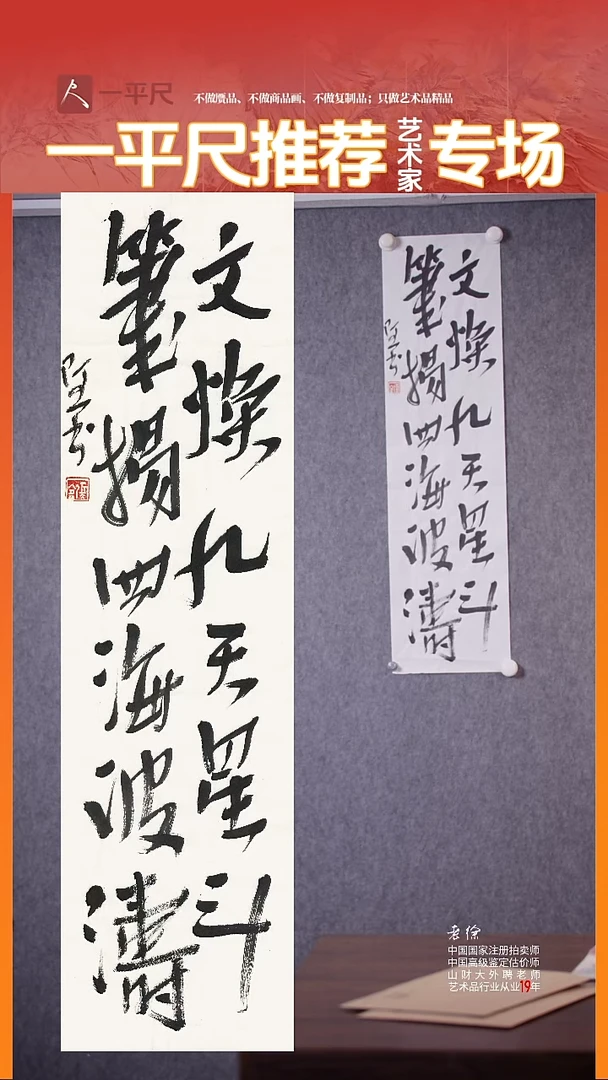 一平尺
不做赝品、不做商品画、不做复制品；只做艺术品精品
一平尺推荐艺术家专场
文燦九天星斗
筆揚四海波濤
文燦九天星斗
筆揚四海波濤
老徐
中国国家注册拍卖师
中国高级鉴定估价师
山财大外聘老师
艺术品行业从业19年